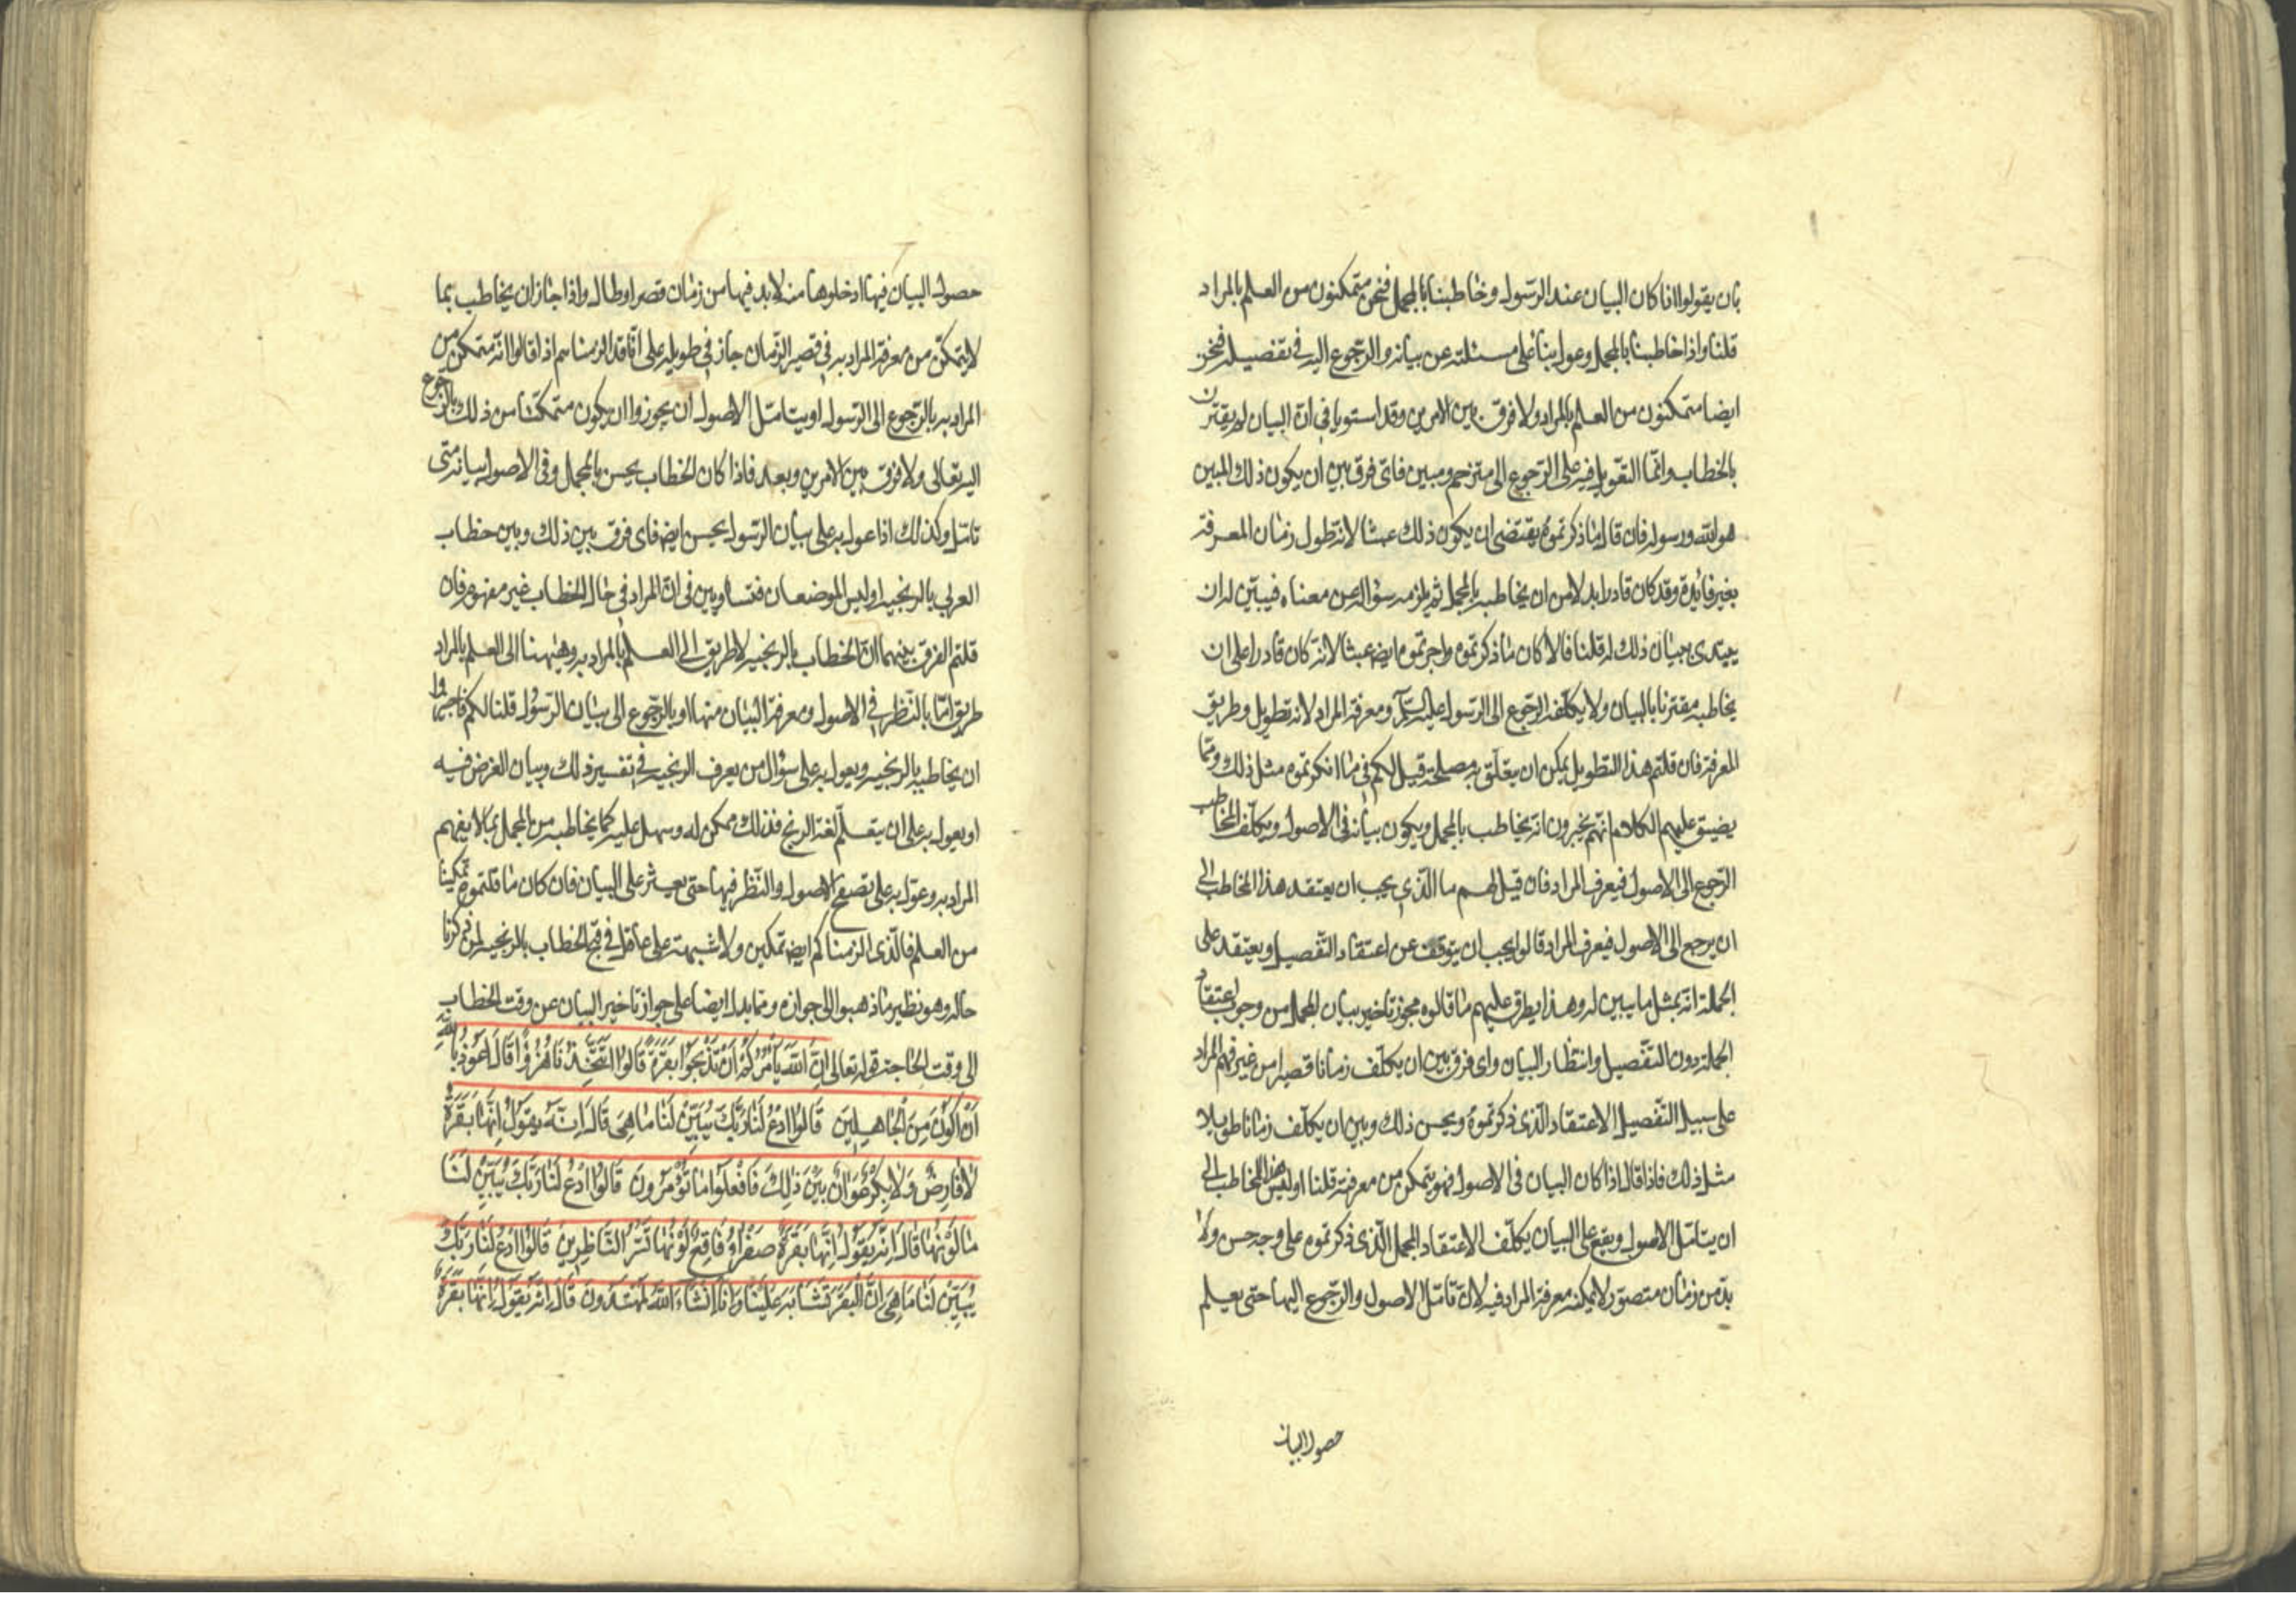 بان يقولوا اذا كان البيان عند الرسول وخاطبنا بالمجمل فنحن متمكنون من العلم بالمراد
قلنا واذا خاطبنا بالمجمل وعول بنا على مسئلته عن بيانه والرجوع اليه في تفصيله فنحن
ايضا متمكنون من العلم بالمراد ولا فرق بين الامرين وقد استويا في ان البيان لم يقترن
بالخطاب وانما التعويل فيه على الرجوع الى مترجم ومبين فاى فرق بين ان يكون ذلك المبين
هو الله ورسوله فان قال ما ذكرتموه يقتضى ان يكون ذلك عبثا لانه تطول زمان المعرفة
بغير فائدة وقد كان قادرا بدلا من ان يخاطبه بالمجمل ثم يلزمه سؤاله عن معناه فيبين له ان
يبتدى ببيان ذلك له قلنا فالا كان ما ذكرتموه واجزتموه ايض عبثا لانه كان قادرا على ان
يخاطبه مقترنا بالبيان ولا يكلفه الرجوع الى الرسول عليه السلم ومعرفة المراد لانه تطويل وطريق
المعرفة فان قلتم هذا التطويل يمكن ان يتعلق به مصلحة قيل لكم في ما انكرتموه مثل ذلك ومما
يضيق عليهم الكلام انهم يخبرون انه يخاطب بالمجمل ويكون بيانه في الاصول ويكلف المخاطب
الرجوع الى الاصول فيعرف المراد فان قيل لهم ما الذي يجب ان يعتقد هذا المخاطب الى
ان يرجع الى الاصول فيعرف المراد قالوا يجب ان يتوقف عن اعتقاد التفصيل ويعتقد على
الجملة انه يمثل ما يبين له وهذا يطرق عليهم ما قالوه مجوز تاخير بيان المجمل من وجوب اعتقاد
الجملة دون التفصيل وانتظار البيان واى فرق بين ان يكلف زمانا قصيرا من غير فهم المراد
على سبيل التفصيل الاعتقاد الذى ذكرتموه ويحسن ذلك وبين ان يكلف زمانا طويلا
مثل ذلك فاذا قال اذا كان البيان في الاصول فهو يتمكن من معرفته قلنا اوليس هذا المخاطب الى
ان يتامل الاصول ويقع على البيان يكلف الاعتقاد المجمل الذى ذكرتموه على وجه حسن ولا
بد من زمان متصور لا يمكنه معرفة المراد فيه لان تامل الاصول والرجوع اليها حتى يعلم
حصول البيان
حصول البيان فيها ادخلوها من لا بد فيها من زمان قصر او طال واذا جاز ان يخاطب بما
لا يتمكن من معرفة المراد به في قصير الزمان جاز في طويله على انا قد الزمناهم اذا قالوا انه متمكن من
المراد به بالرجوع الى الرسول او يتامل الاصول ان يجوزوا ان يكون متمكنا من ذلك بالرجوع
اليه تعالى ولا فرق بين الامرين وبعد فاذا كان الخطاب يحسن بالمجمل وفي الاصول بيانه متى
تامل وكذلك اذا عول به على بيان الرسول يحسن ايض فاى فرق بين ذلك وبين خطاب
العربي بالزنجية اوليس الموضعان متساويين في ان المراد في حال الخطاب غير مفهوم فان
قلتم الفرق بينهما ان الخطاب بالزنجية لا طريق الى العلم بالمراد به وهيهنا الى العلم بالمراد
طريق اما بالنظر في الاصول ومعرفة البيان منها او بالرجوع الى بيان الرسول قلنا لكم فاجيزوا
ان يخاطبه بالزنجية ويعول به على سؤال من يعرف الزنجية في تفسير ذلك وبيان الغرض فيه
او يعول به على ان يتعلم لغة الزنج فذلك ممكن له وسهل عليه كما يخاطبه من المجمل بما لا يفهم
المراد به وعول به على تصفح الاصول والنظر فيها حتى يعثر على البيان فان كان ما قلتموه تمكينا
من العلم فالذى الزمناكم ايض تمكين ولا شبهة على عاقل في قبح الخطاب بالزنجية لمن ذكرنا
حاله وهو نظير ما ذهبوا الى جوازه ومما يدل ايضا على جواز تاخير البيان عن وقت الخطاب
الى وقت الحاجة قوله تعالى اِنَّ اللّٰهَ يَأْمُرُكُمْ اَنْ تَذْبَحُوا بَقَرَةً قَالُوا اَتَتَّخِذُنَا هُزُوًا قَالَ اَعُوذُ بِاللّٰهِ
اَنْ اَكُونَ مِنَ الْجَاهِلِينَ قَالُوا ادْعُ لَنَا رَبَّكَ يُبَيِّنْ لَنَا مَا هِيَ قَالَ اِنَّهُ يَقُولُ اِنَّهَا بَقَرَةٌ
لَا فَارِضٌ وَلَا بِكْرٌ عَوَانٌ بَيْنَ ذٰلِكَ فَافْعَلُوا مَا تُؤْمَرُونَ قَالُوا ادْعُ لَنَا رَبَّكَ يُبَيِّنْ لَنَا
مَا لَوْنُهَا قَالَ اِنَّهُ يَقُولُ اِنَّهَا بَقَرَةٌ صَفْرَاءُ فَاقِعٌ لَوْنُهَا تَسُرُّ النَّاظِرِينَ قَالُوا ادْعُ لَنَا رَبَّكَ
يُبَيِّنْ لَنَا مَا هِيَ اِنَّ الْبَقَرَ تَشَابَهَ عَلَيْنَا وَاِنَّا اِنْشَاءَ اللّٰهُ لَمُهْتَدُونَ قَالَ اِنَّهُ يَقُولُ اِنَّهَا بَقَرَةٌ